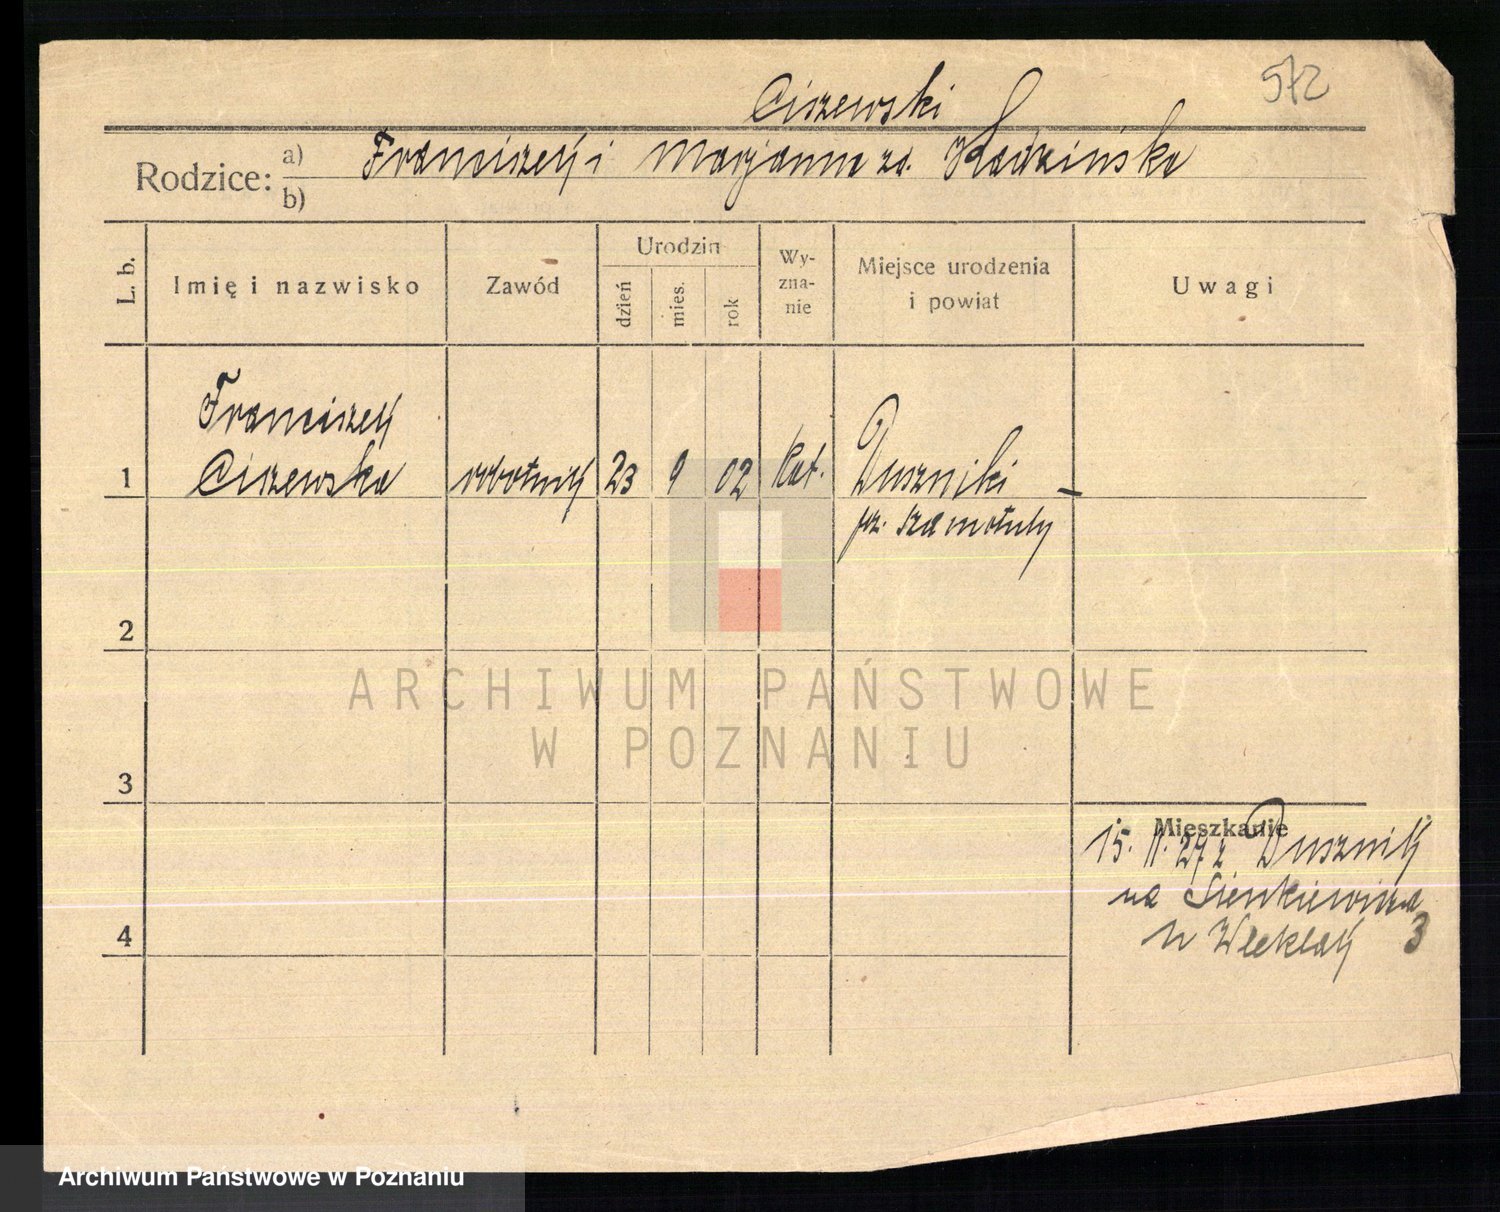 572
Ciszewski
Rodzice: a) Franciszek i Marjanna zd. Kadzińska
b)
L. b.
Imię i nazwisko
Zawód
Urodzin
dzień
mies.
rok
Wy-
zna-
nie
Miejsce urodzenia
i powiat
Uwagi
Franciszek
1 Ciszewska robotnik 23 9 02 kat. Duszniki –
pz. Szamotuły
2
ARCHIWUM PAŃSTWOWE
W POZNANIU
3
Mieszkanie
15. 11. 27 z Dusznik
na Sienkiewicza
4
u Wleklak 3
Archiwum Państwowe w Poznaniu